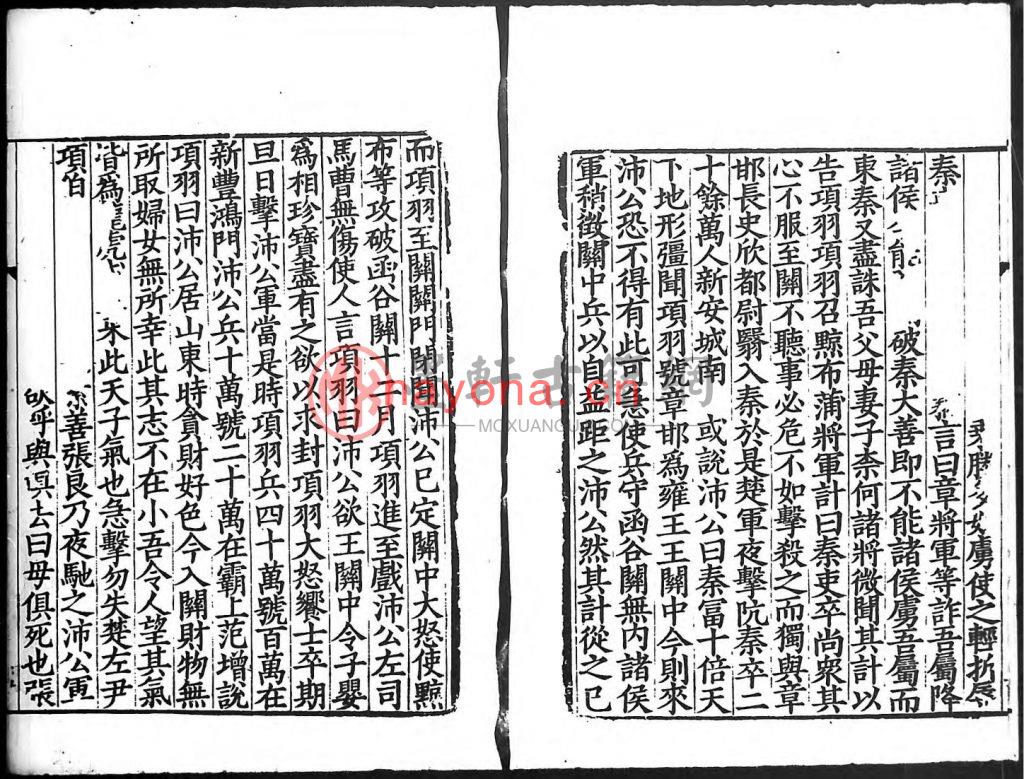 勝多奴虜使之輕折辱
秦 言曰章將軍等詐吾屬降
諸侯 能 破秦大善即不能諸侯虜吾屬而
東秦又盡誅吾父母妻子柰何諸將微聞其計以
告項羽項羽召黥布蒲將軍計曰秦吏卒尚衆其
心不服至關不聽事必危不如擊殺之而獨與章
邯長史欣都尉翳入秦於是楚軍夜擊阬秦卒二
十餘萬人新安城南 或說沛公曰秦富十倍天
下地形彊聞項羽號章邯爲雍王王關中今則來
沛公恐不得有此可急使兵守函谷關無內諸侯
軍稍徵關中兵以自益距之沛公然其計從之已
而項羽至關關門閉聞沛公已定關中大怒使黥
布等攻破函谷關十二月項羽進至戲沛公左司
馬曹無傷使人言項羽曰沛公欲王關中令子嬰
爲相珍寶盡有之欲以求封項羽大怒饗士卒期
旦日擊沛公軍當是時項羽兵四十萬號百萬在
新豐鴻門沛公兵十萬號二十萬在霸上范增說
項羽曰沛公居山東時貪財好色今入關財物無
所取婦女無所幸此其志不在小吾令人望其氣
皆爲 此天子氣也急擊勿失楚左尹
項伯 善張良乃夜馳之沛公軍
呼與俱去曰毋俱死也張
墨軒古籍網
nayona.cn
MOXUANGUJI.COM